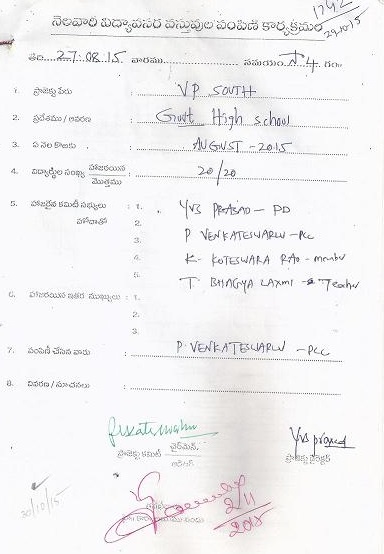 1742
29.10.15
నెలవారి విద్యావసర వస్తువుల పంపిణీ కార్యక్రమం
తేది. 27.08.15 వారము సమయం సా 4 గం
1. ప్రాజెక్టు పేరు : VP SOUTH
2. ప్రదేశము / ఆవరణ : Govt High school
3. ఏ నెల కొఱకు : AUGUST - 2015
4. విద్యార్థుల సంఖ్య హాజరయిన / మొత్తము : 20/20
5. హాజరైన కమిటీ సభ్యులు : 1. YVS PRASAD - PD
హోదాతో 2. P VENKATESWARLU - PCC
3. K. KOTESWARA RAO - member
4. T. BHAGYA LAXMI - Teacher
5.
6. హాజరయిన ఇతర ముఖ్యులు : 1.
2.
3.
7. పంపిణీ చేసిన వారు : P. VENKATESWARLU - PCC
8. వివరణ / సూచనలు :
ప్రాజెక్టు కమిటీ చైర్‌మెన్
yvs prasad
ప్రాజెక్టు డైరెక్టర్
30/10/15
2/11
2015